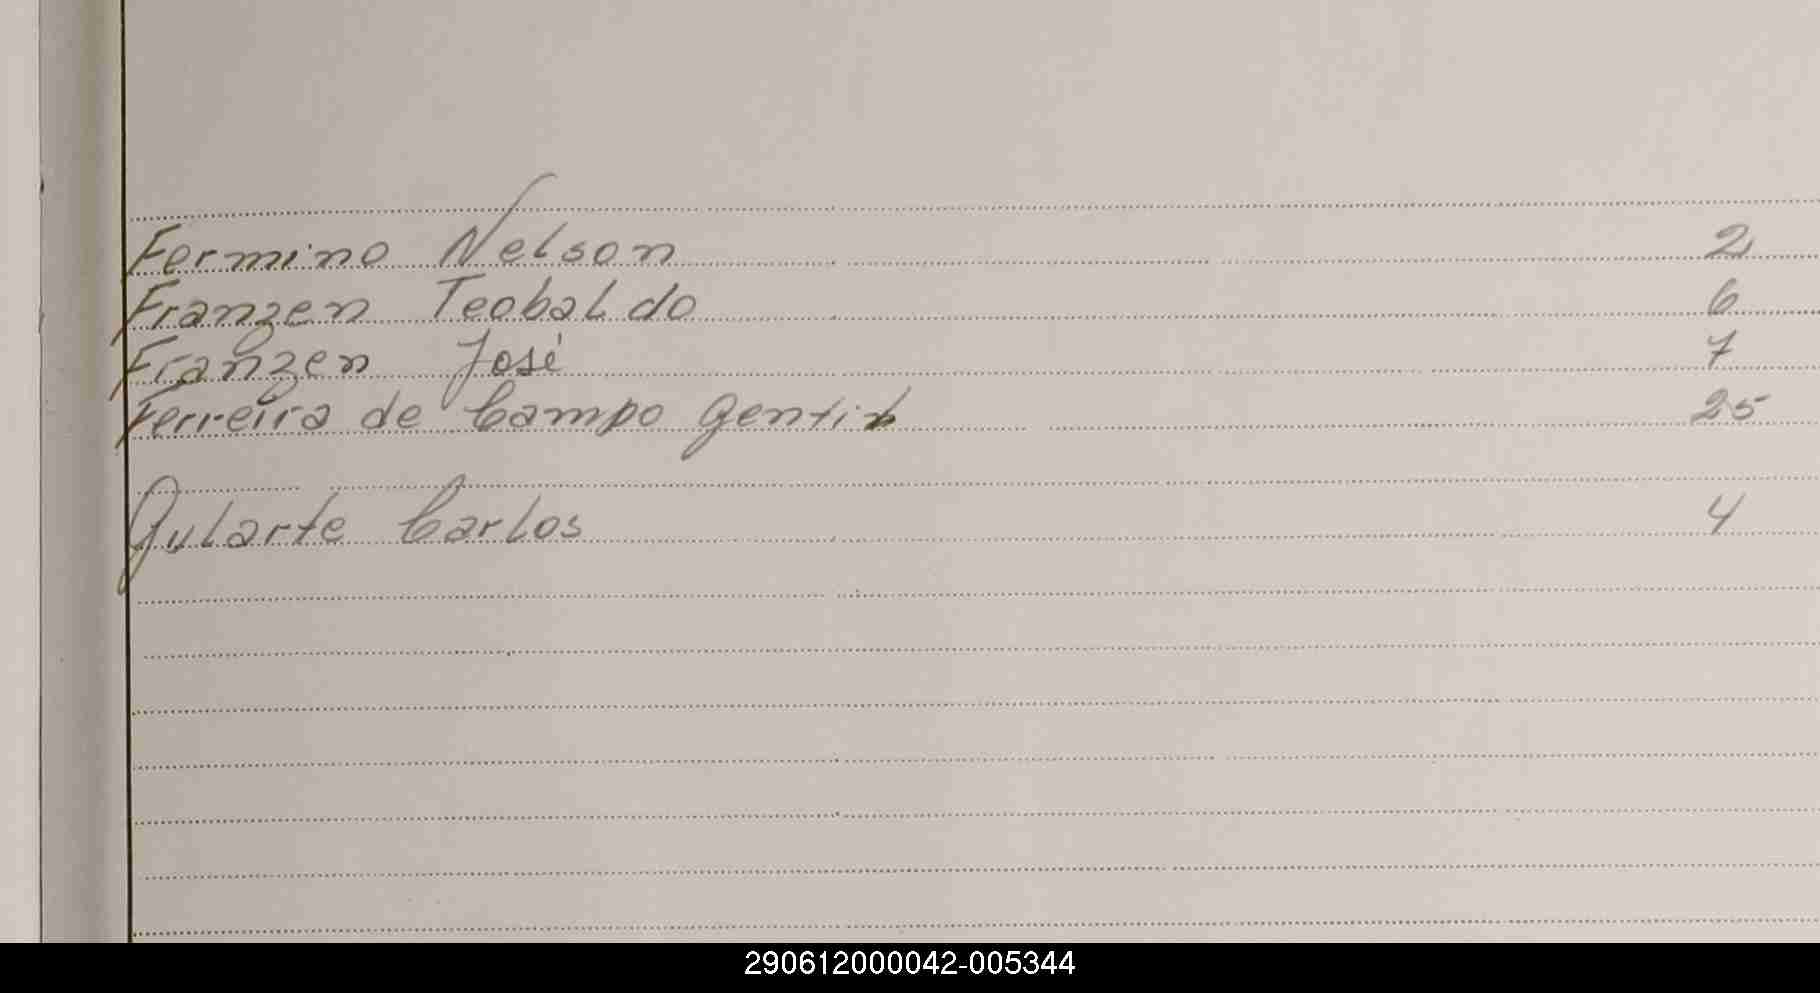 Fermino Nelson 2
Franzen Teobaldo 6
Franzen José 7
Ferreira de Campo Gentil 25
Gularte Carlos 4
290612000042-005344